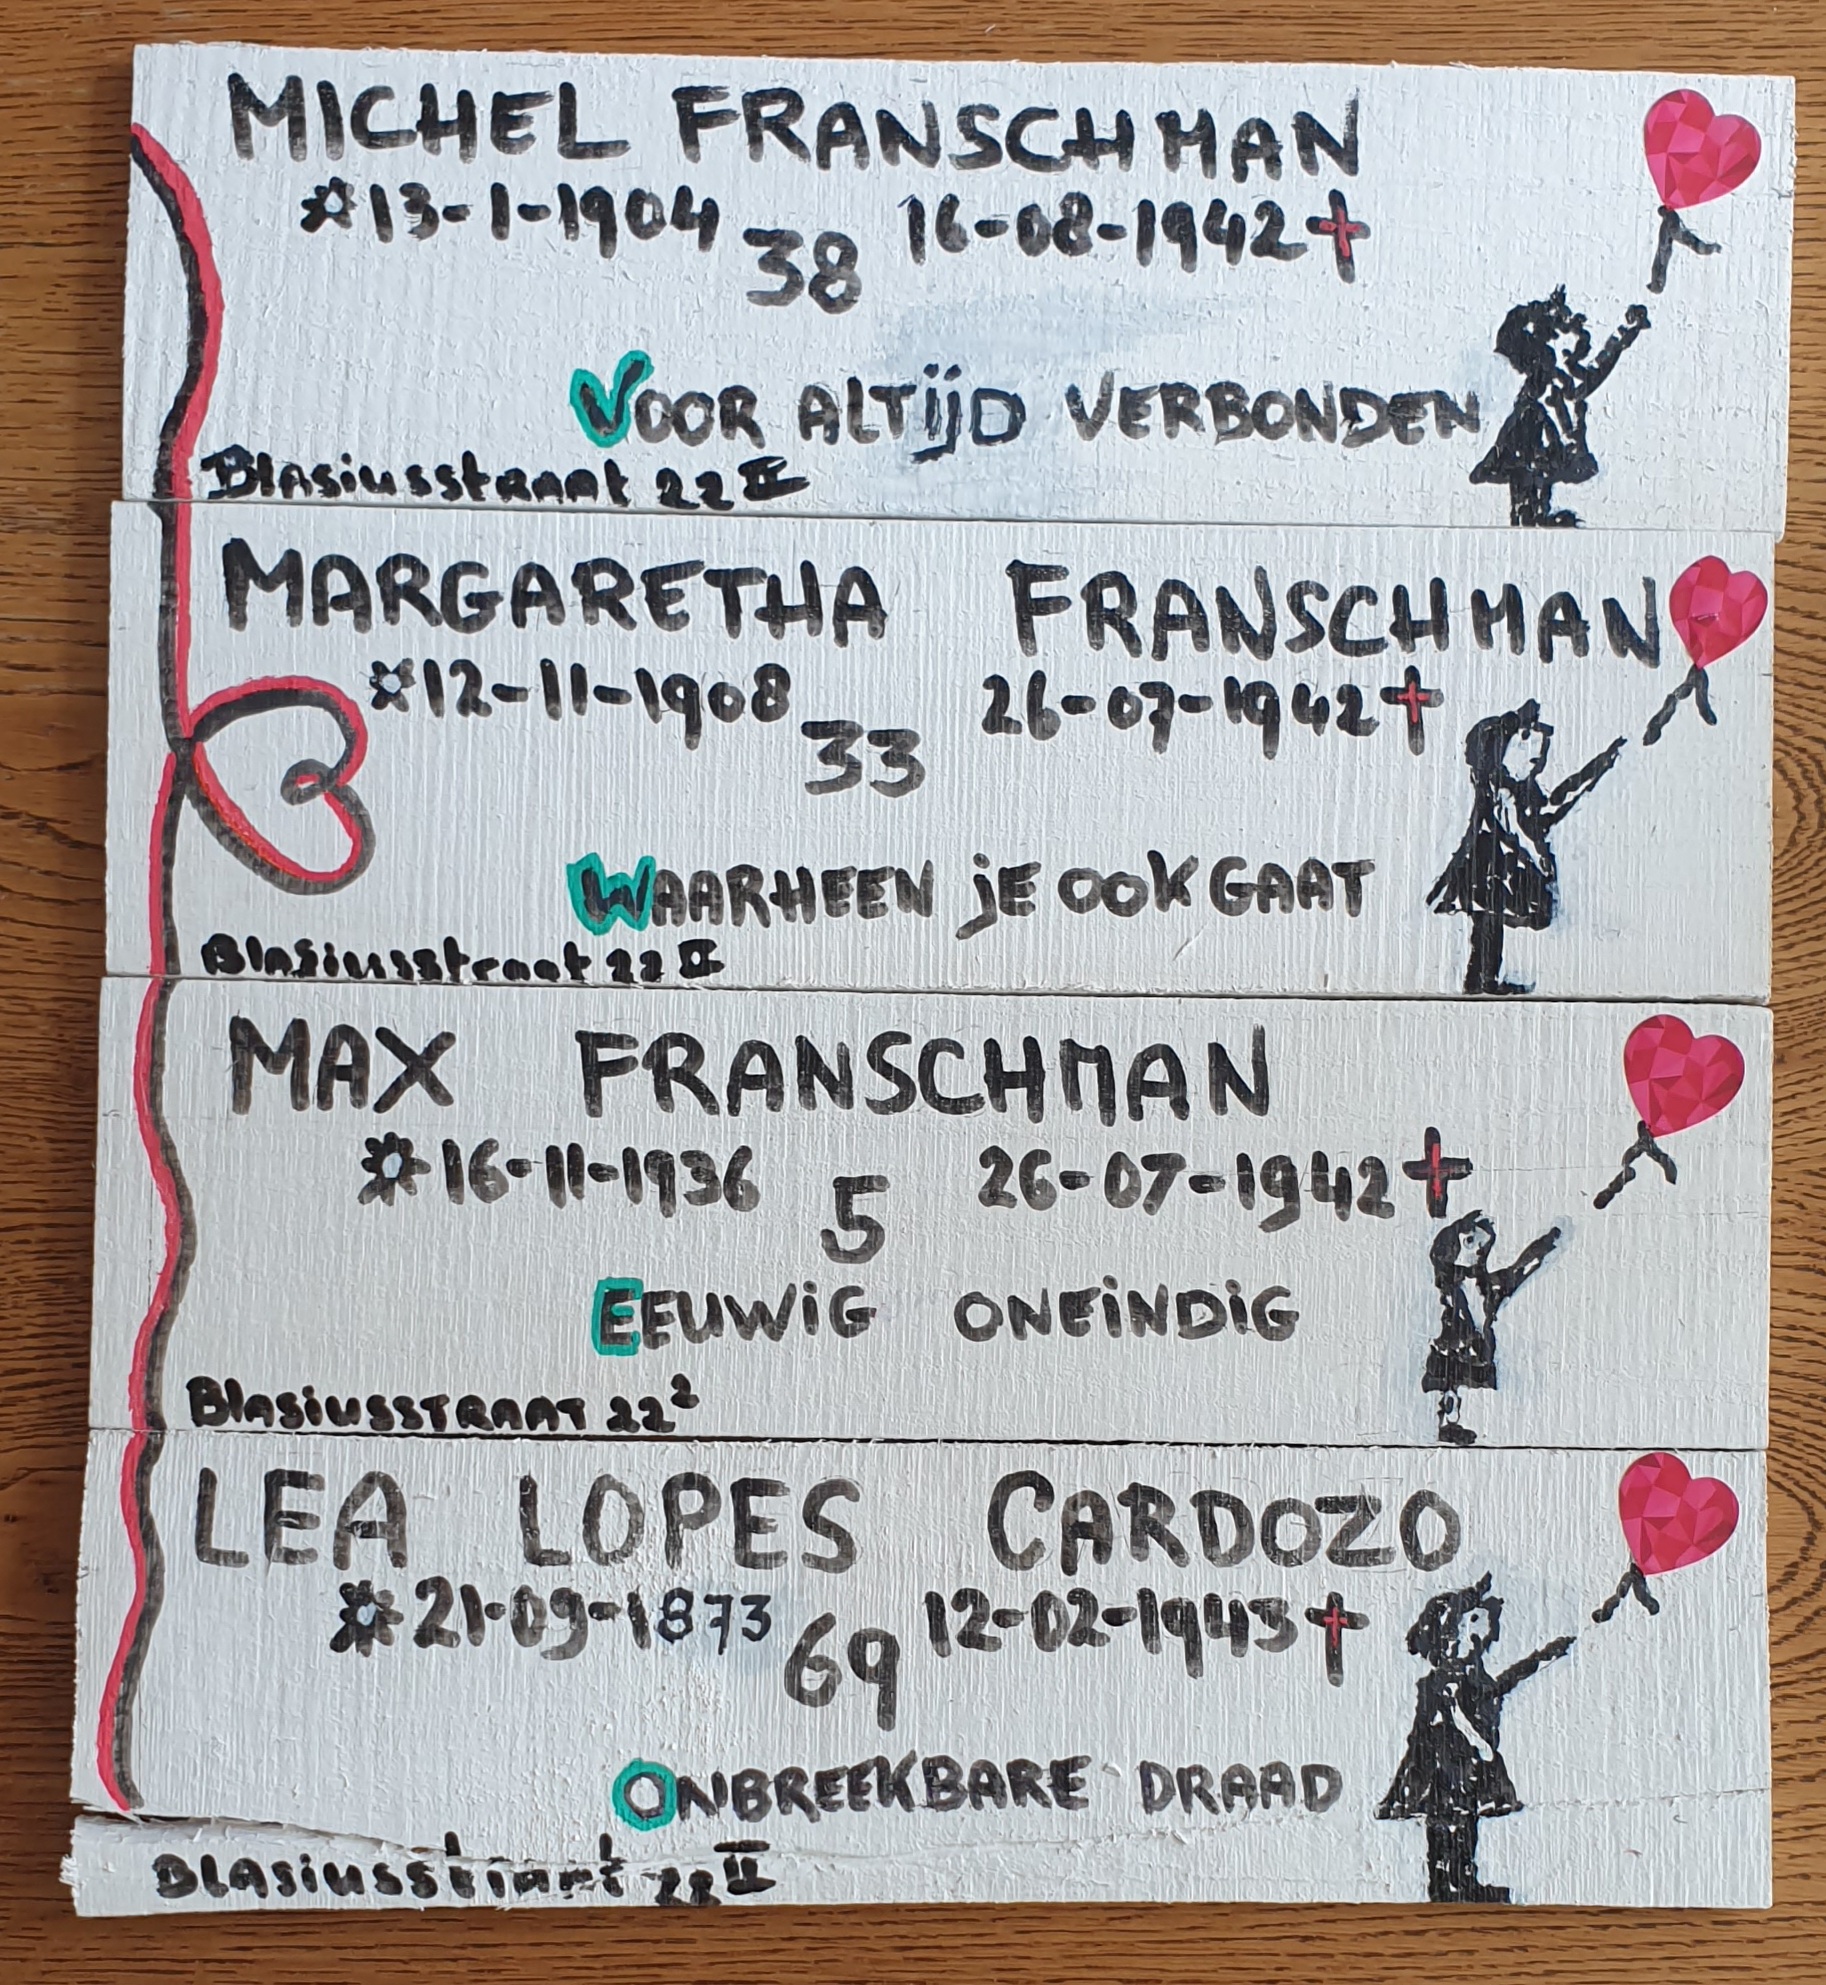 MICHEL FRANSCHMAN
13-1-1904 38 16-08-1942
VOOR ALTIJD VERBONDEN
Blasiusstraat 22 II
MARGARETHA FRANSCHMAN
12-11-1908 33 26-07-1942
WAARHEEN jE OOK GAAT
Blasiusstraat 22 II
MAX FRANSCHMAN
16-11-1936 5 26-07-1942
EEUWiG ONEiNDiG
BlasiusSTRAAT 22²
LEA LOPES CARDOZO
21-09-1873 69 12-02-1943
ONBREEKBARE DRAAD
BLAsiusstraat 22 II